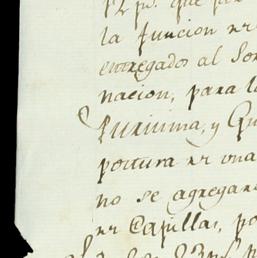 que
la funcion nr
entregados al Son
nacion, para l
Purisima, y Qu
postura nr una
no se agregara
nr Capillas, po